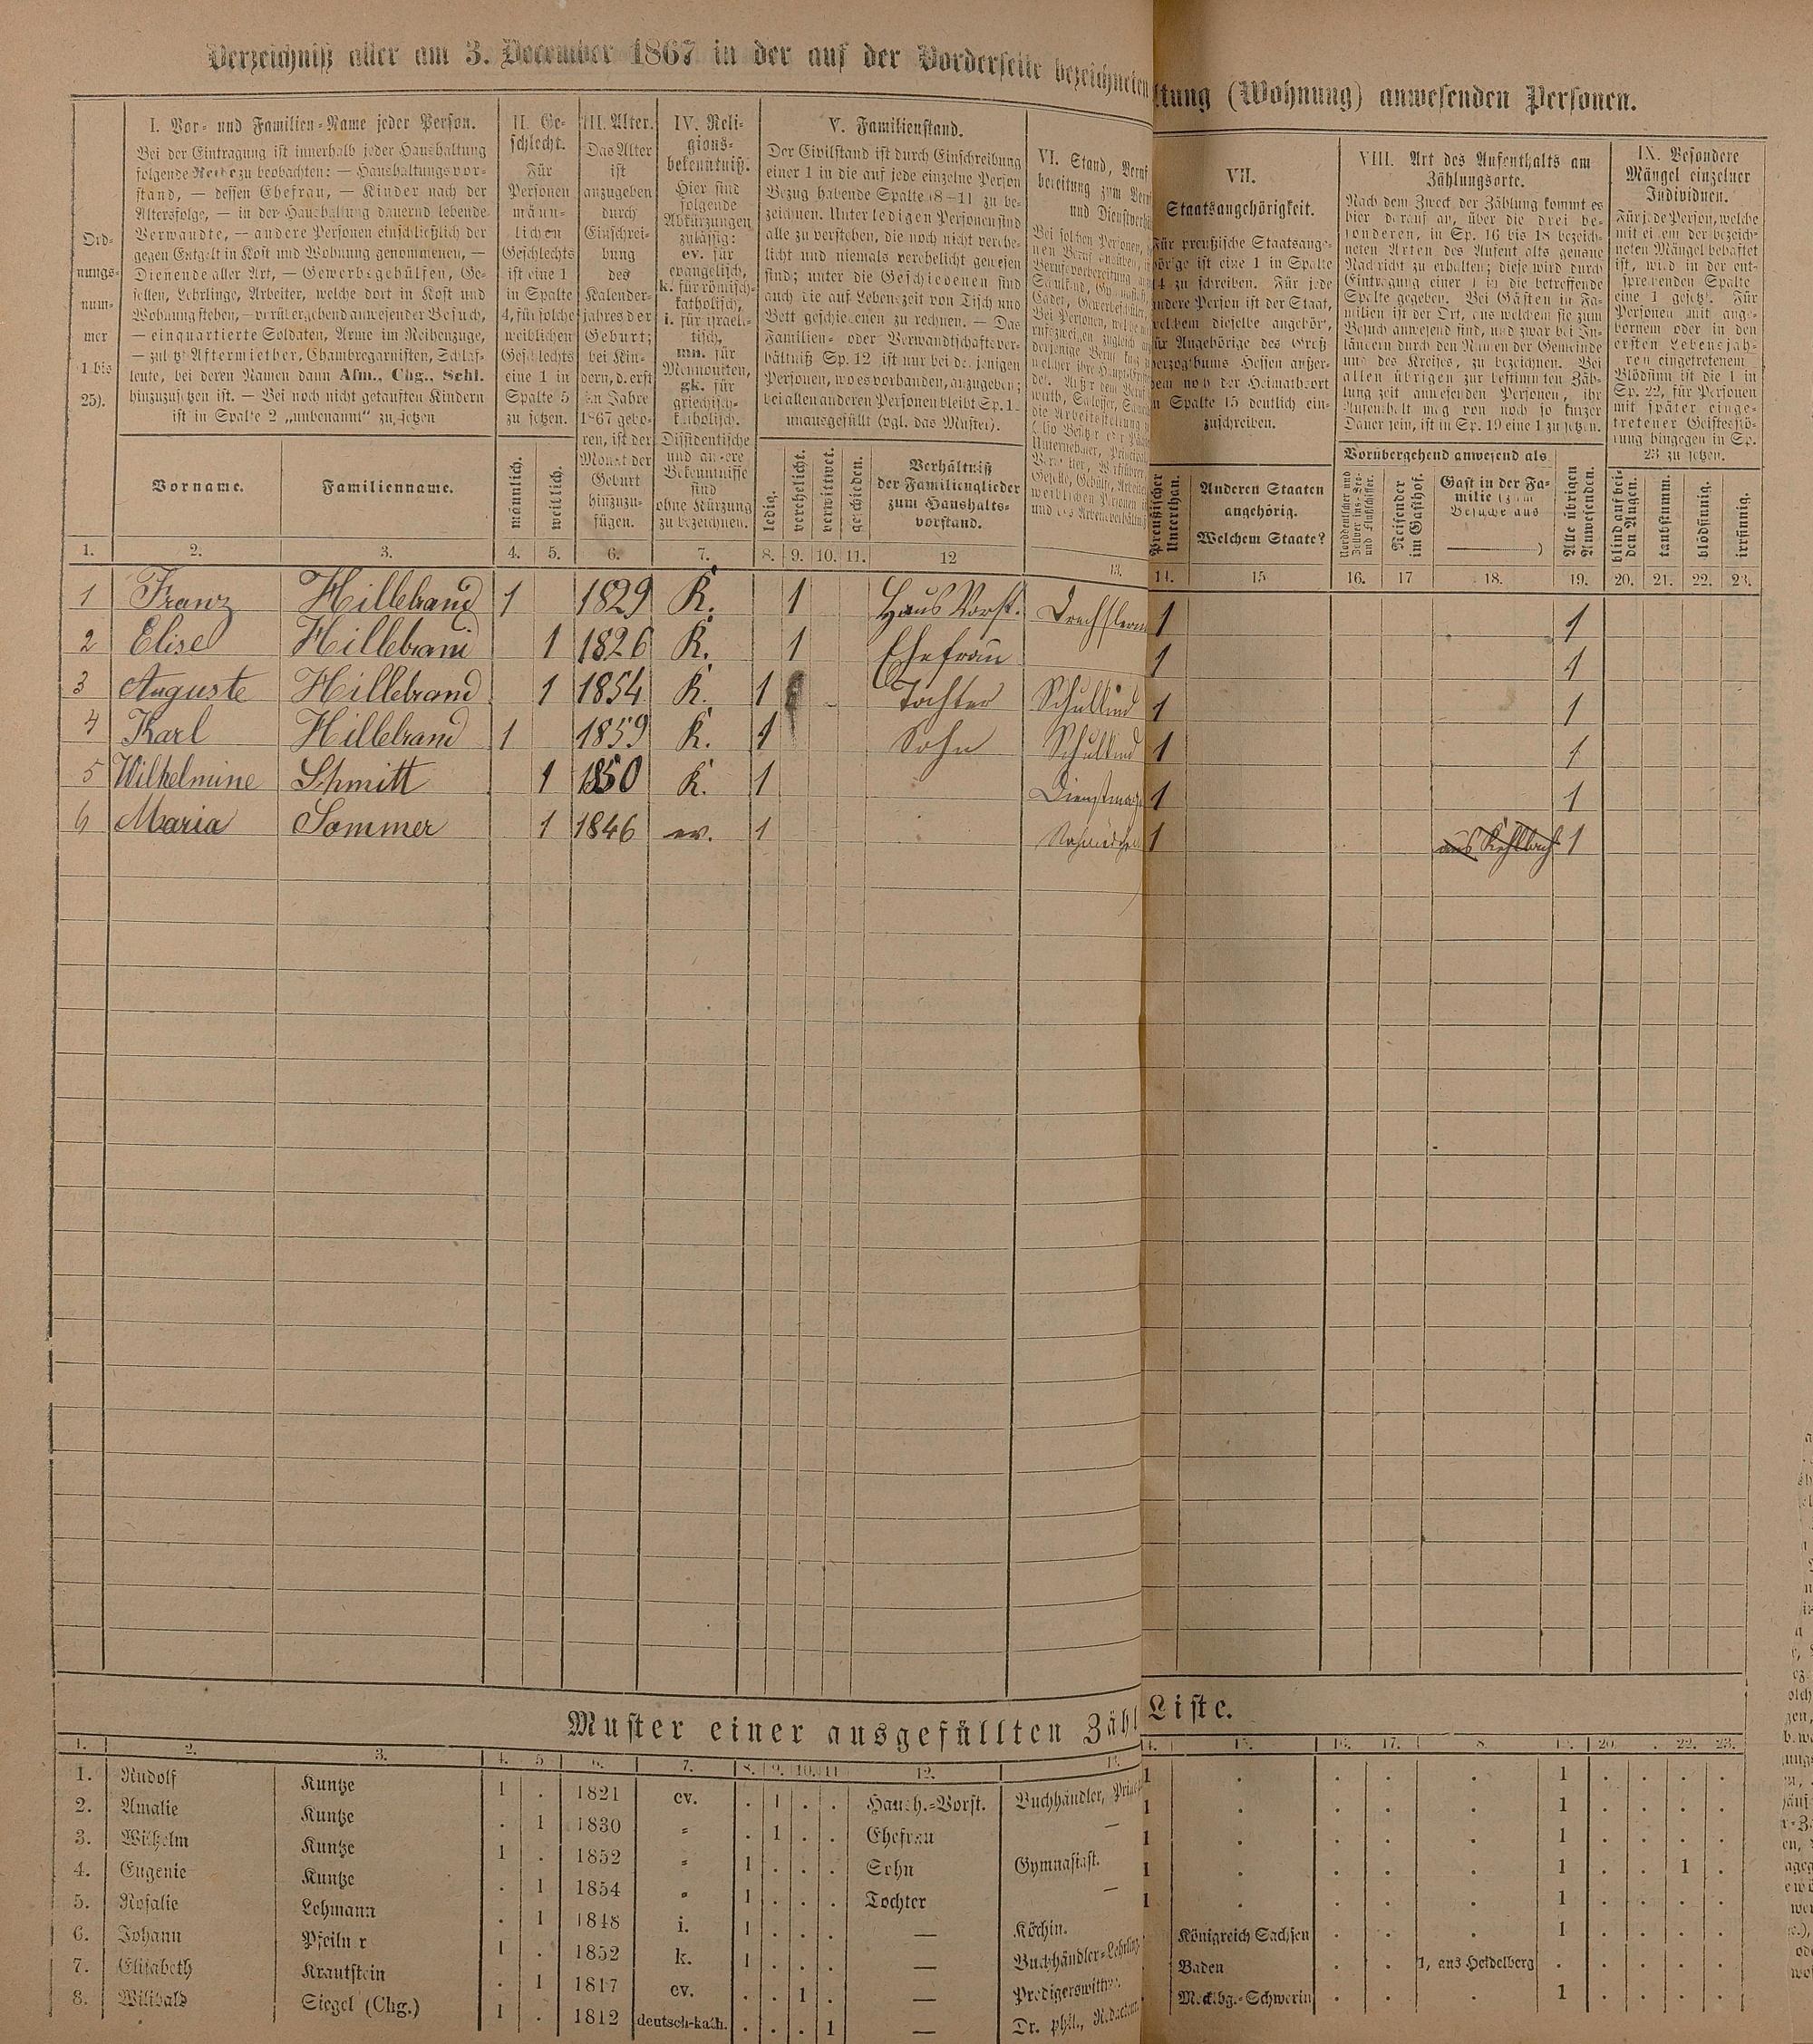 Verzeichniß aller am 3. December 1867 in der auf der Vorderseite bezeichneten
ltung (Wohnung) anwesenden Personen.
Ord-
nungs-
num-
mer
(1 bis
25).
I. Vor- und Familien-Name jeder Person.
Bei der Eintragung ist innerhalb jeder Haushaltung
folgende Reihe zu beobachten: — Haushaltungsvor-
stand, — dessen Ehefrau, — Kinder nach der
Altersfolge, — in der Haushaltung dauernd lebende
Verwandte, — andere Personen einschließlich der
gegen Entgelt in Kost und Wohnung genommenen, —
Dienende aller Art, — Gewerbsgehülfen, Ge-
sellen, Lehrlinge, Arbeiter, welche dort in Kost und
Wohnung stehen, — vorübergehend anwesender Besuch,
— einquartierte Soldaten, Arme im Reihenzuge,
— zuletzt Aftermiether, Chambregarnisten, Schlaf-
leute, bei deren Namen dann Afm., Chg., Schl.
hinzuzusetzen ist. — Bei noch nicht getauften Kindern
ist in Spalte 2 „unbenannt“ zu setzen
Vorname.
Familienname.
II. Ge-
schlecht.
Für
Personen
männ-
lichen
Geschlechts
ist eine 1
in Spalte
4, für solche
weiblichen
Geschlechts
eine 1 in
Spalte 5
zu setzen.
männlich.
weiblich.
III. Alter.
Das Alter
ist
anzugeben
durch
Einschrei-
bung
des
Kalender-
jahres der
Geburt;
bei Kin-
dern, d. erst
im Jahre
1867 gebo-
ren, ist der
Monat der
Geburt
hinzuzu-
fügen.
IV. Reli-
gions-
bekenntniß.
Hier sind
folgende
Abkürzungen
zulässig:
ev. für
evangelisch,
k. für römisch-
katholisch,
i. für israeli-
tisch,
mn. für
Mennoniten,
gk. für
griechisch-
katholisch.
Dissidentische
und andere
Bekenntnisse
sind
ohne Kürzung
zu bezeichnen.
V. Familienstand.
Der Civilstand ist durch Einschreibung
einer 1 in die auf jede einzelne Person
Bezug habende Spalte (8–11) zu be-
zeichnen. Unter ledigen Personen sind
alle zu verstehen, die noch nicht verehe-
licht und niemals verehelicht gewesen
sind; unter die Geschiedenen sind
auch die auf Lebenszeit von Tisch und
Bett geschiedenen zu rechnen. — Das
Familien- oder Verwandtschaftsver-
hältniß Sp. 12 ist nur bei denjenigen
Personen, wo es vorhanden, anzugeben;
bei allen anderen Personen bleibt Sp. 12
unausgefüllt (vgl. das Muster).
ledig.
verehelicht.
verwittwet.
geschieden.
Verhältniß
der Familienglieder
zum Haushalts-
vorstand.
VI. Stand, Beruf
VII.
Staatsangehörigkeit.
Für preußische Staatsange-
hörige ist eine 1 in Spalte
14 zu schreiben. Für jede
andere Person ist der Staat,
welchem dieselbe angehört,
für Angehörige des Groß-
herzogthums Hessen außer-
dem noch der Heimathsort
in Spalte 15 deutlich ein-
zuschreiben.
Preußischer
Unterthan.
Anderen Staaten
angehörig.
Welchem Staate?
VIII. Art des Aufenthalts am
Zählungsorte.
Nach dem Zweck der Zählung kommt es
hier darauf an, über die drei be-
sonderen, in Sp. 16 bis 18 bezeich-
neten Arten des Aufenthalts genaue
Nachricht zu erhalten; diese wird durch
Eintragung einer 1 in die betreffende
Spalte gegeben. Bei Gästen in Fa-
milien ist der Ort, aus welchem sie zum
Besuch anwesend sind, und zwar bei In-
ländern durch den Namen der Gemeinde
und des Kreises, zu bezeichnen. Bei
allen übrigen zur bestimmten Zäh-
lung zeit anwesenden Personen, ihr
Aufenthalt mag von noch so kurzer
Dauer sein, ist in Sp. 19 eine 1 zu setzen.
Vorübergehend anwesend als
Reisender
im Gasthof.
Gast in der Fa-
milie (zum
Besuche aus
)
Alle übrigen
Anwesenden.
IX. Besondere
Mängel einzelner
Individuen.
Für jede Person, welche
mit einem der bezeich-
neten Mängel behaftet
ist, wird in der ent-
sprechenden Spalte
eine 1 gesetzt. Für
Personen mit ange-
bornem oder in den
ersten Lebensjah-
ren eingetretenem
Blödsinn ist die 1 in
Sp. 22, für Personen
mit später einge-
tretener Geistesstö-
rung hingegen in Sp.
23 zu setzen.
blind auf bei-
den Augen.
taubstumm.
blödsinnig.
irrsinnig.
1. 2. 3. 4. 5. 6. 7. 8. 9. 10. 11. 12 13. 14. 15 16. 17 18. 19. 20. 21. 22. 23.
1 Franz Hillebrand 1 1829 K. 1 Haus Vorst. 1 1
2 Elise Hillebrand 1 1826 K. 1 Ehefrau 1 1
3 Auguste Hillebrand 1 1854 K. 1 Tochter Schulkind 1 1
4 Karl Hillebrand 1 1859 K. 1 Sohn Schulkind 1 1
5 Wilhelmine Schmitt 1 1850 K. 1 Dienstmagd 1 1
6 Maria Sommer 1 1846 ev. 1 1 1
Muster einer ausgefüllten Zähl
Liste.
1. 2. 3. 4. 5 6. 7. 8. 9. 10. 11 12. 13. 14. 15. 16. 17. 8. 19. 20. 22. 23.
1. Rudolf Kuntze 1 . 1821 ev. . 1 . . Haush.-Vorst. Buchhändler, 1 . . . . 1 . . . .
2. Amalie Kuntze . 1 1830 „ . 1 . . Ehefrau — 1 . . . . 1 . . . .
3. Wilhelm Kuntze 1 . 1852 „ 1 . . . Sohn Gymnasiast. 1 . . . . 1 . . . .
4. Eugenie Kuntze . 1 1854 „ 1 . . . Tochter — 1 . . . . 1 . . 1 .
5. Rosalie Lehmann . 1 1848 i. 1 . . . — Köchin. 1 . . . . 1 . . . .
6. Johann 1 . 1852 k. 1 . . . — Buchhändler-Lehrling. Königreich Sachsen . . . 1 . . . .
7. Elisabeth Krautstein . 1 1817 ev. . . 1 . — Predigerswittwe. Baden . . 1, aus Heidelberg . . . . .
8. Wilibald Siegel (Chg.) 1 . 1812 deutsch-kath. . . . 1 — Dr. phil., Redacteur. Mecklbg.-Schwerin . . . 1 . . . .